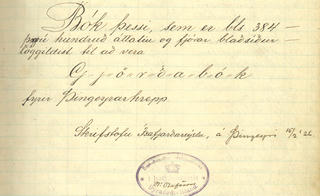 Bók þessi, sem er bls 384 –
þrjú hundruð áttatiu og fjórar blaðsiður –
löggildist til að vera
Gjörðabók
fyrir Þingeyrarhrepp
Skrifstofu Ísafjarðarsýslu, á Þingeyri